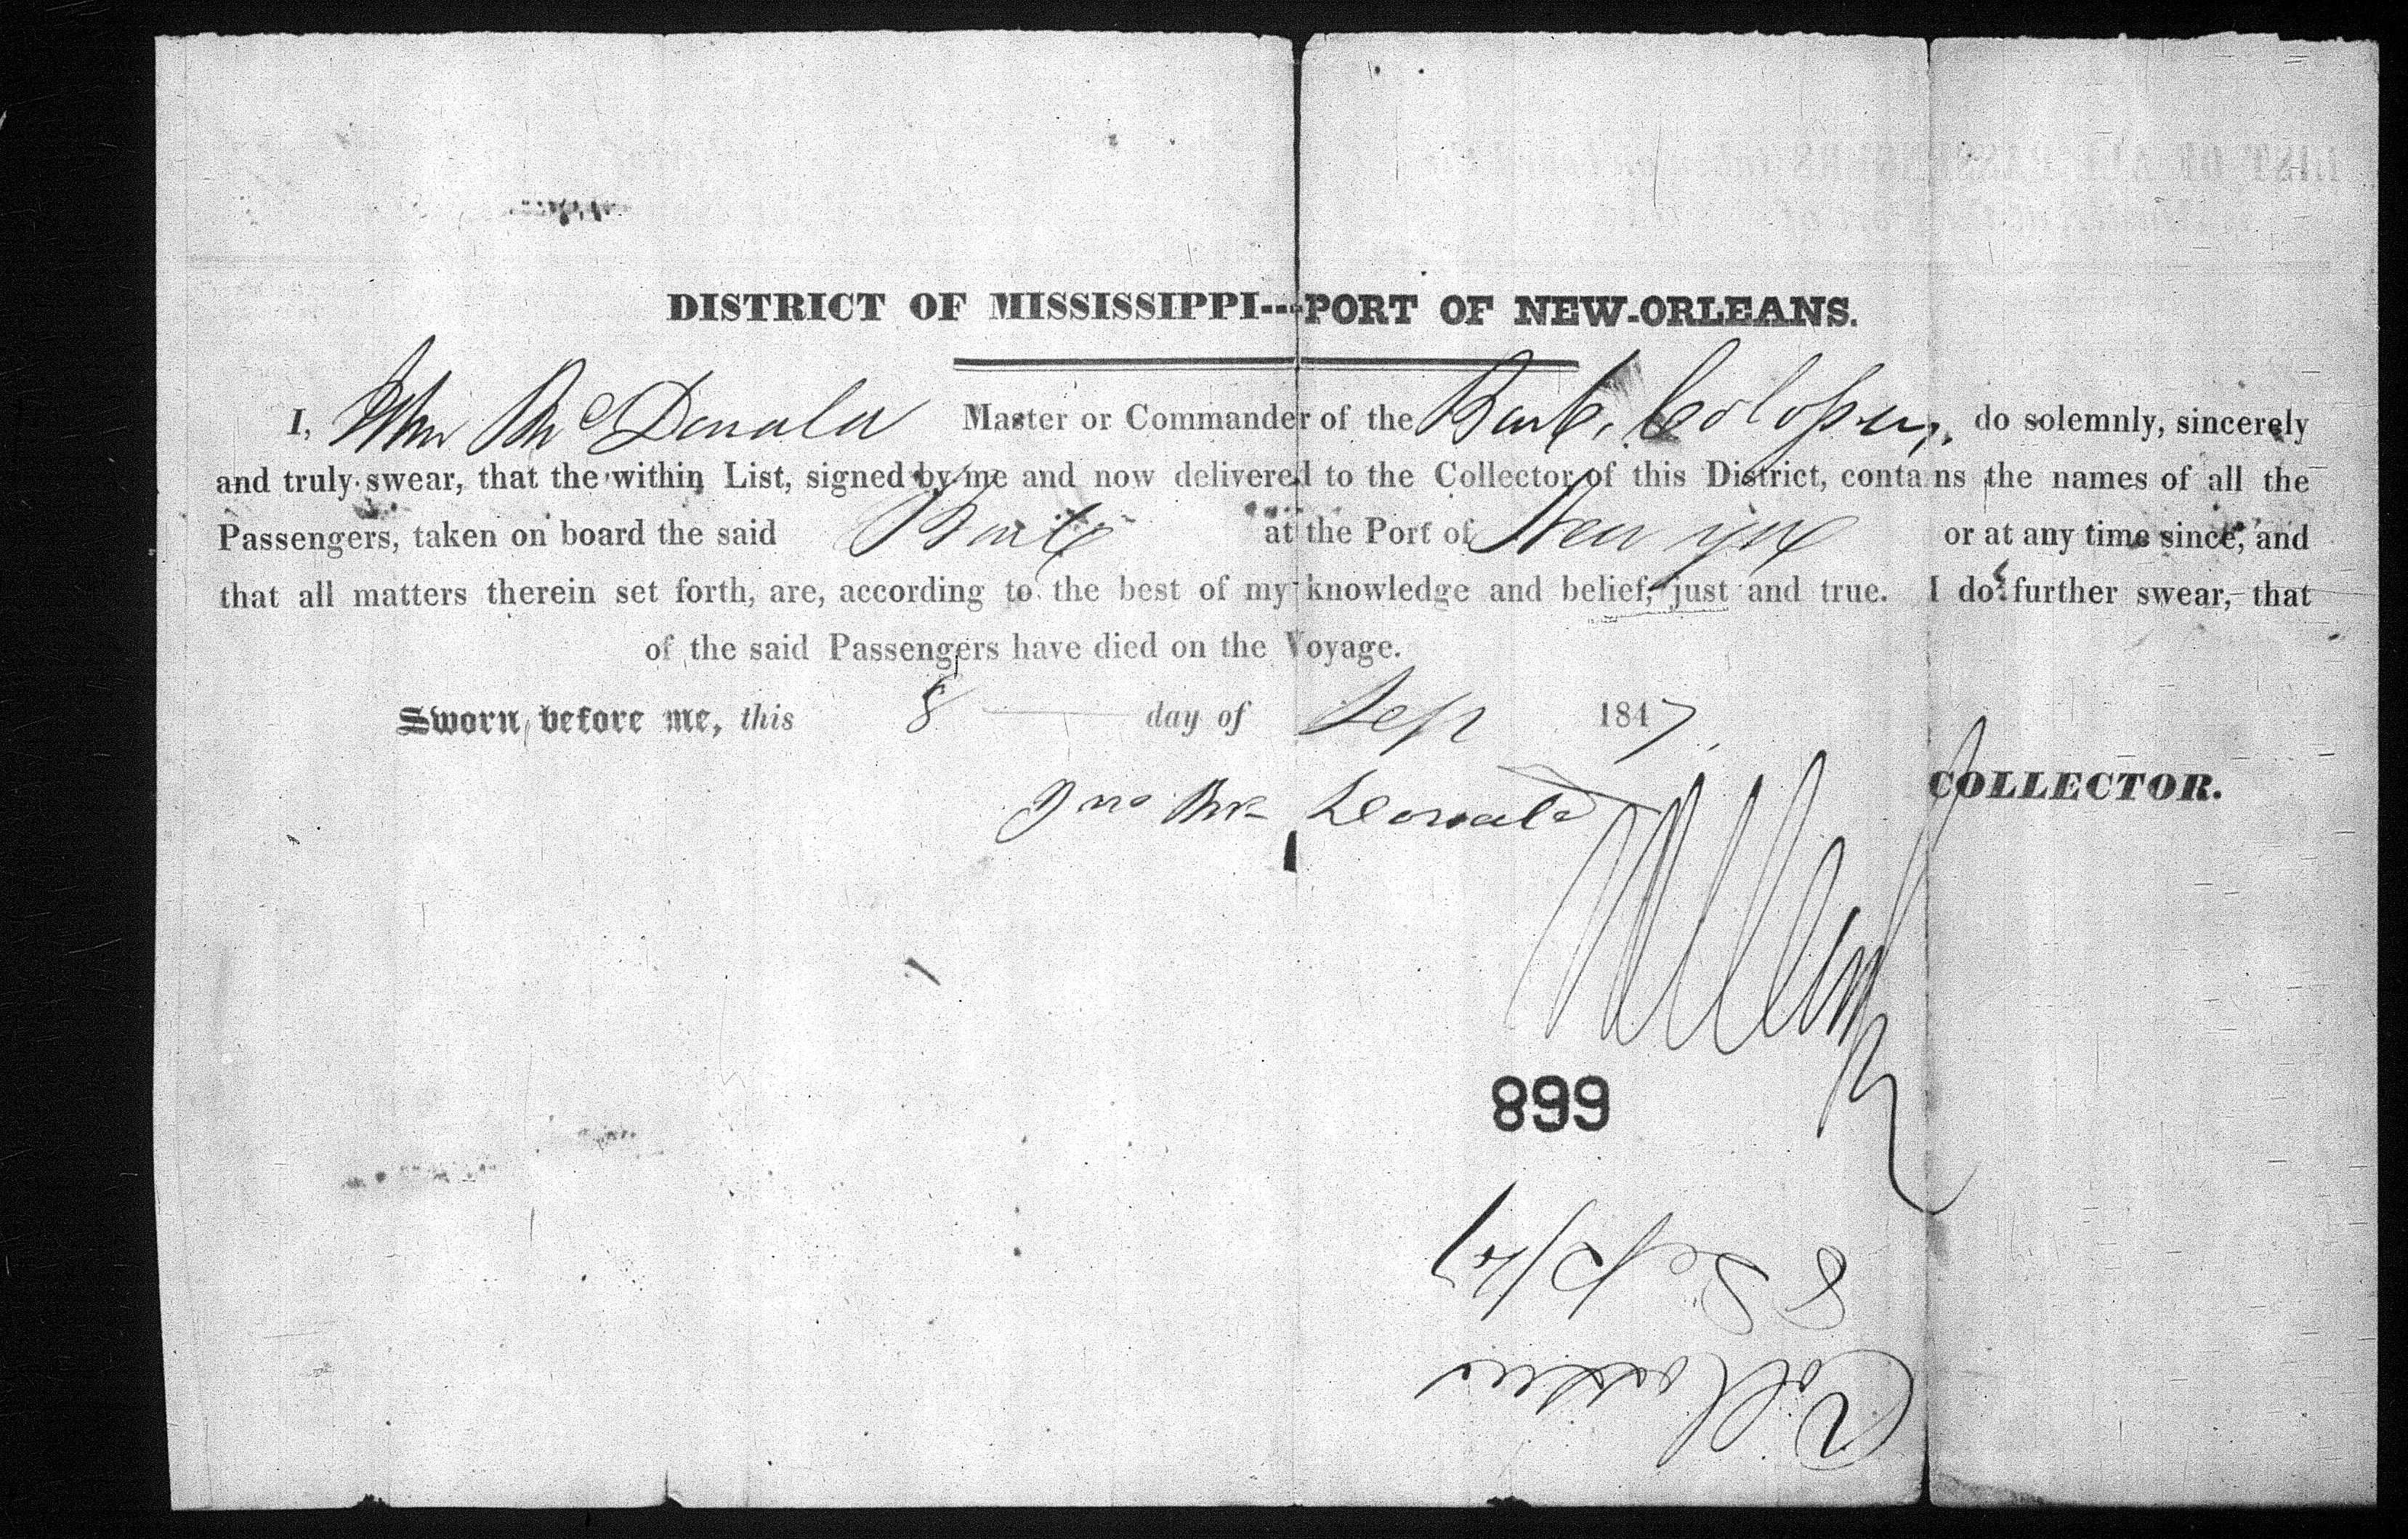 DISTRICT OF MISSISSIPPI---PORT OF NEW-ORLEANS.
I, Mc Donald Master or Commander of the Bark, do solemnly, sincerely
and truly swear, that the within List, signed by me and now delivered to the Collector of this District, contains the names of all the
Passengers, taken on board the said Bark at the Port of New York or at any time since, and
that all matters therein set forth, are, according to the best of my knowledge and belief, just and true. I do further swear, that
of the said Passengers have died on the Voyage.
Sworn before me, this 8 day of Sep 1847.
COLLECTOR.
Jno Mc Donald
899
8 Sep/47